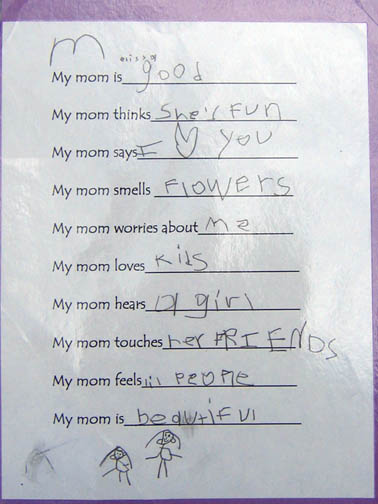 m
My mom is good
My mom thinks she's FUN
My mom says I ♡ YOU
My mom smells FLOWERS
My mom worries about me
My mom loves Kids
My mom hears a girl
My mom touches her FRIENDS
My mom feels PEOPLE
My mom is beautiFUl